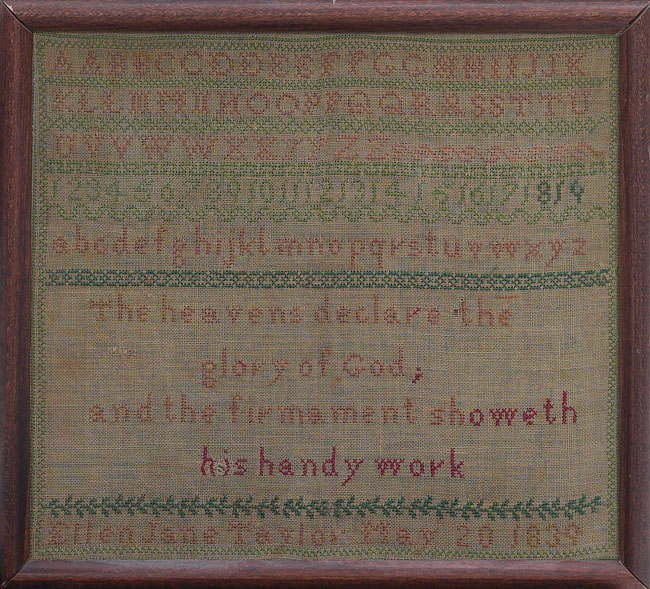 A A B B C C D D E E F F G G H H I I J J K
K L L M M N N O O P P Q Q R R S S T T U
U V V W W X X Y Y Z Z
1 2 3 4 5 6 7 8 9 10 11 12 13 14 15 16 17 18 19
a b c d e f g h i j k l m n o p q r s t u v w x y z
The heavens declare the
glory of God;
and the firmament showeth
his handy work
Ellen Jane Taylor May 20 1839